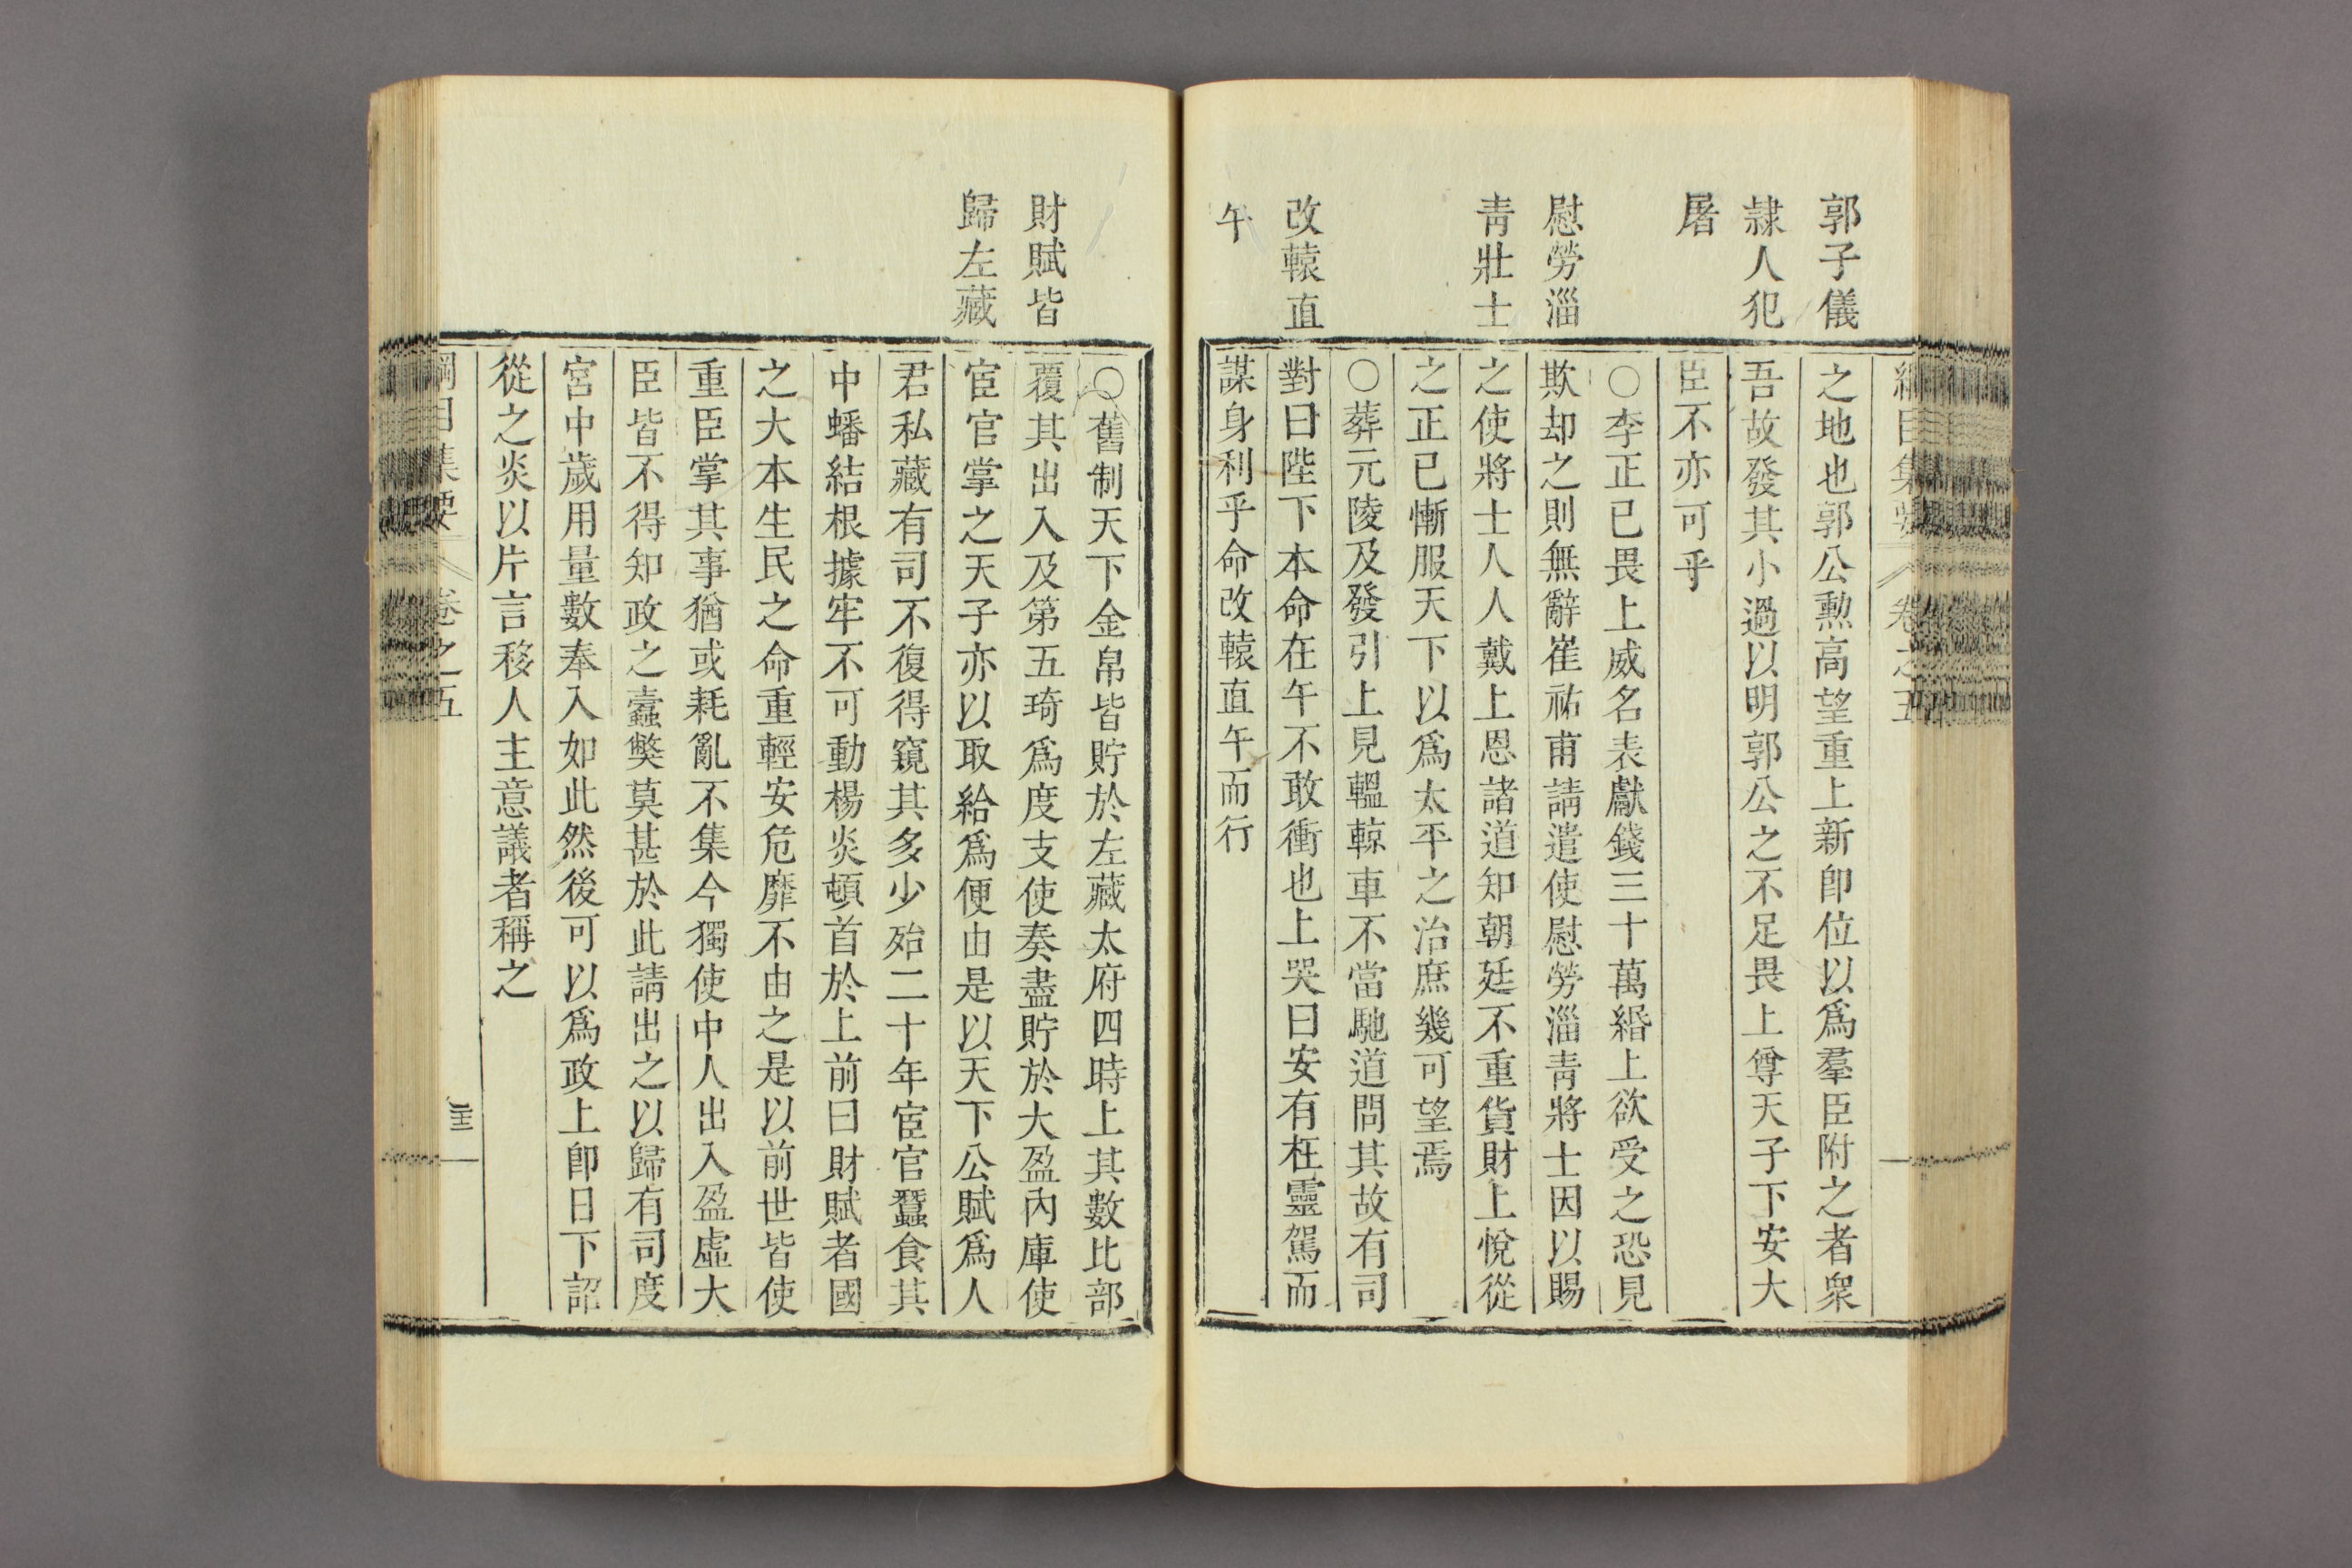 郭子儀
隷人犯
屠
慰勞淄
青壯士
改轅直
午
之地也郭公勲高望重上新卽位以爲羣臣附之者衆
吾故發其小過以明郭公之不足畏上尊天子下安大
臣不亦可乎
○李正已畏上威名表獻錢三十萬緡上欲受之恐見
欺却之則無辭崔祐甫請遣使慰勞淄青將士因以賜
之使將士人人戴上恩諸道知朝廷不重貨財上悅從
之正已慚服天下以爲太平之治庶幾可望焉
○葬元陵及發引上見轀輬車不當馳道問其故有司
對曰陛下本命在午不敢衝也上哭曰安有枉靈駕而
謀身利乎命改轅直午而行
財賦皆
歸左藏
○舊制天下金帛皆貯於左藏太府四時上其數比部
覆其出入及第五琦爲度支使奏盡貯於大盈內庫使
宦官掌之天子亦以取給爲便由是以天下公賦爲人
君私藏有司不復得窺其多少殆二十年宦官蠶食其
中蟠結根據牢不可動楊炎頓首於上前曰財賦者國
之大本生民之命重輕安危靡不由之是以前世皆使
重臣掌其事猶或耗亂不集今獨使中人出入盈虛大
臣皆不得知政之蠹獘莫甚於此請出之以歸有司度
宮中歲用量數奉入如此然後可以爲政上卽日下詔
從之炎以片言移人主意議者稱之
綱目集要
卷之五